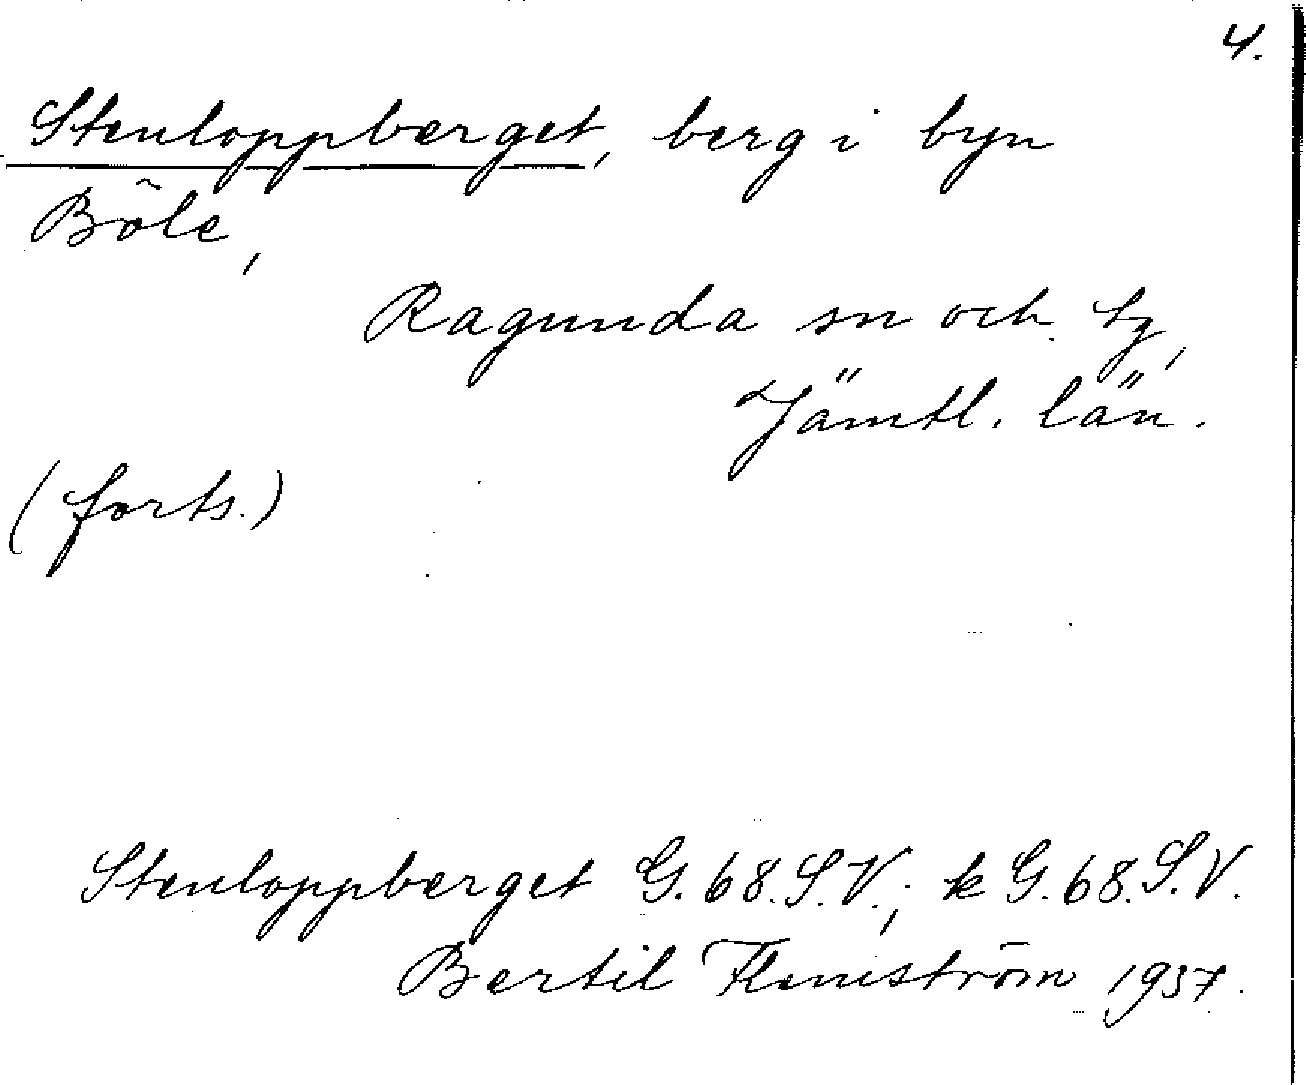 4.
Stenloppberget, berg i byn
Böle,
Ragunda sn och tg,
Jämtl. län.
(forts.)
Stenloppberget G.68.S.V.; k G.68.S.V.
Bertil Flemström 1957.